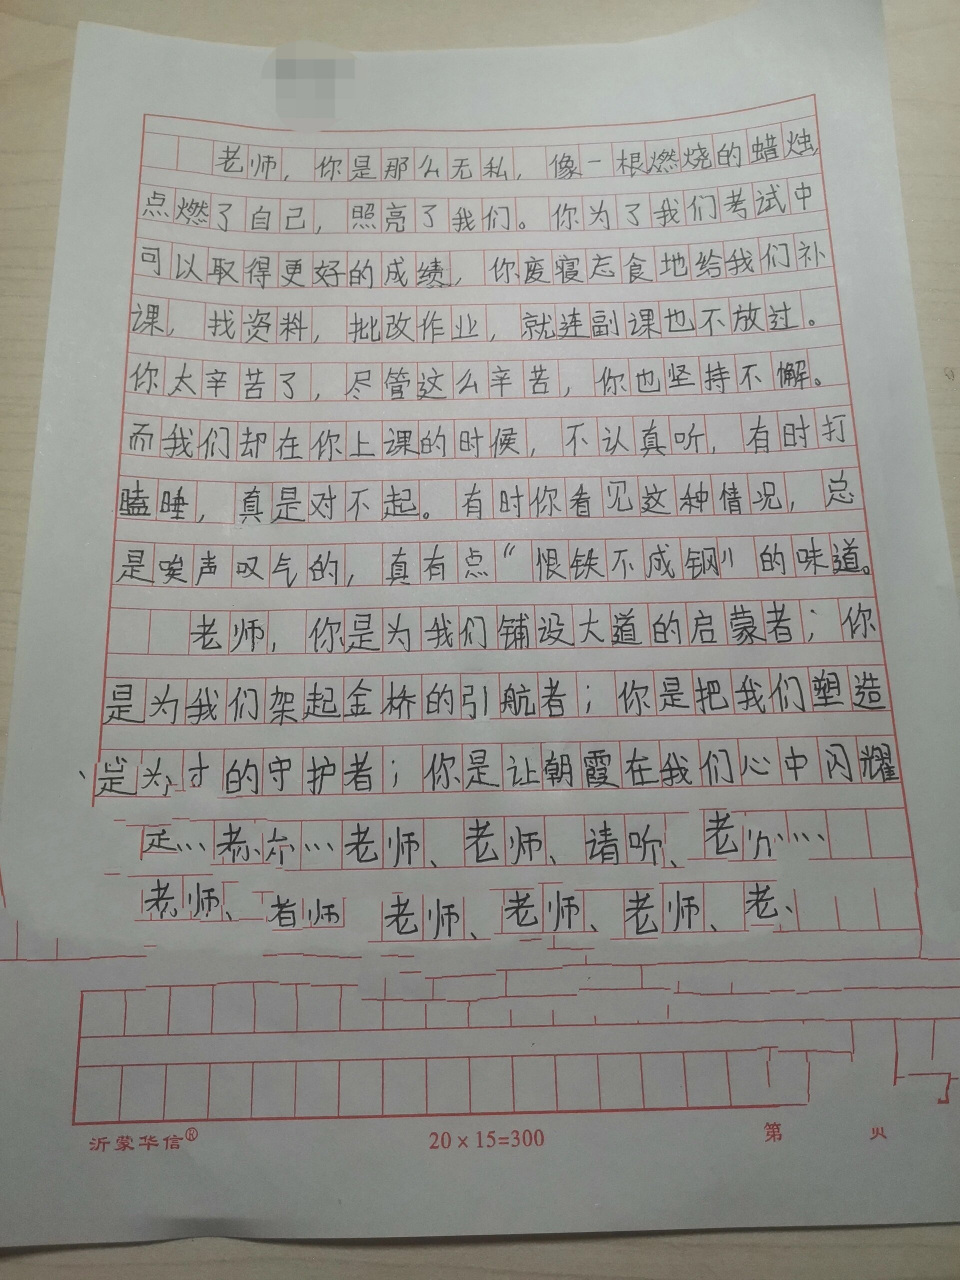 老师，你是那么无私，像一根燃烧的蜡烛，
点燃了自己，照亮了我们。你为了我们考试中
可以取得更好的成绩，你废寝忘食地给我们补
课，找资料，批改作业，就连副课也不放过。
你太辛苦了，尽管这么辛苦，你也坚持不懈。
而我们却在你上课的时候，不认真听，有时打
瞌睡，真是对不起。有时你看见这种情况，总
是唉声叹气的，真有点“恨铁不成钢”的味道。
老师，你是为我们铺设大道的启蒙者；你
是为我们架起金桥的引航者；你是把我们塑造
为才的守护者；你是让朝霞在我们心中闪耀
老师、老师、请听、老
老师、 老师、老师、老师、老、
沂蒙华信® 20×15=300 第 页